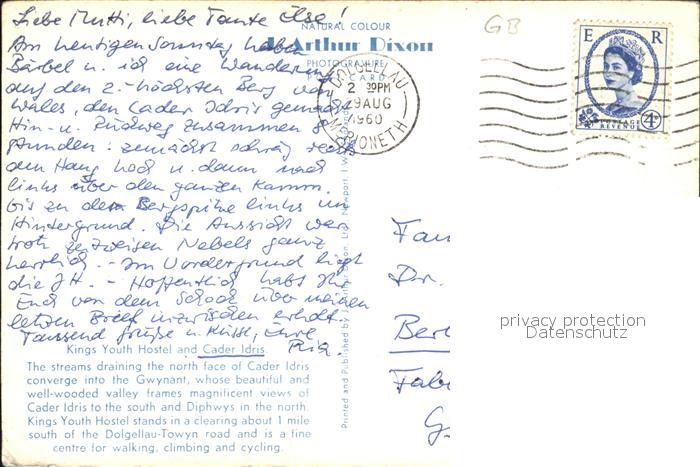 Liebe Mutti, liebe Tante Else!
Am heutigen Sonntag haben
Bärbel u. ich eine Wanderung
auf den 2.-höchsten Berg von
Wales, den Cader Idris gemacht
Hin- u. Rückweg zusammen 8
Stunden: zunächst schräg rechts
den Hang hoch u. dann nach
links über den ganzen Kamm
bis zu dem Bergspitze links im
Hintergrund. Die Aussicht war
trotz zeitweisen Nebels ganz
herrlich. - Im Vordergrund liegt
die JH. - Hoffentlich habt Ihr
Euch von dem Schock über meinen
letzten Brief inzwischen erholt.
Tausend Grüße u. Küsse, Eure
Ria.
NATURAL COLOUR
J. Arthur Dixon
PHOTOGRAVURE
CARD
GB
DOLGELLAU
2 30PM
29 AUG
1960
MERIONETH
E R
POSTAGE
REVENUE
4D
Printed and Published by J. Arthur Dixon, Ltd., Newport, I.W.
Dr.
privacy protection
Datenschutz
Kings Youth Hostel and Cader Idris
The streams draining the north face of Cader Idris
converge into the Gwynant, whose beautiful and
well-wooded valley frames magnificent views of
Cader Idris to the south and Diphwys in the north.
Kings Youth Hostel stands in a clearing about 1 mile
south of the Dolgellau-Towyn road and is a fine
centre for walking, climbing and cycling.